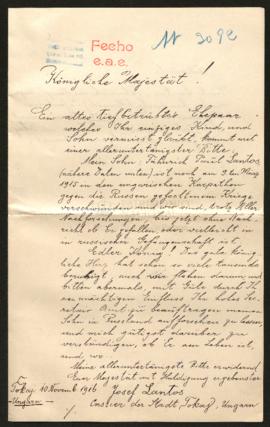 Fecho
e.a.e.
No 3092
Königliche Majestät!
Ein altes tiefbetrübtes Ehepaar
welches Ihr einziges Kind und
Sohn vermisst glaubt, kommt mit
einer alleruntertänigster Bitte.
Mein Sohn, Fähnrich Paul Santos
(nähere Daten unten) ist noch am
1915 in den ungarischen Karpathen
gegen die Russen gefochtenen Kriege
verschwunden und sind trotz aller
Nachforschungen, bis jetzt ohne Nach
richt ob Er gefallen, oder vielleicht in
in russischer Gefangenschaft ist.
Edler König! Das gute könig
liche Herz hat schon so viele tausende
beruhigt, auch wir flehen darum und
bitten abermals, mit Güte durch Ihren
mächtigen Einfluss Ihr hohes Sec
retariat zu beauftragen meinen
Sohn in Russland ausforschen zu lassen
und mich gütigst darüber zu
verständigen, ob Er am Leben ist,
und wo
Meine alleruntertänigste Bitte erwidernd
Euer Majestät mit Huldigung ergebenster
Tokaj 10 November 1916 Josef Santos
Ungarn Cassier der Stadt Tokaj, Ungarn